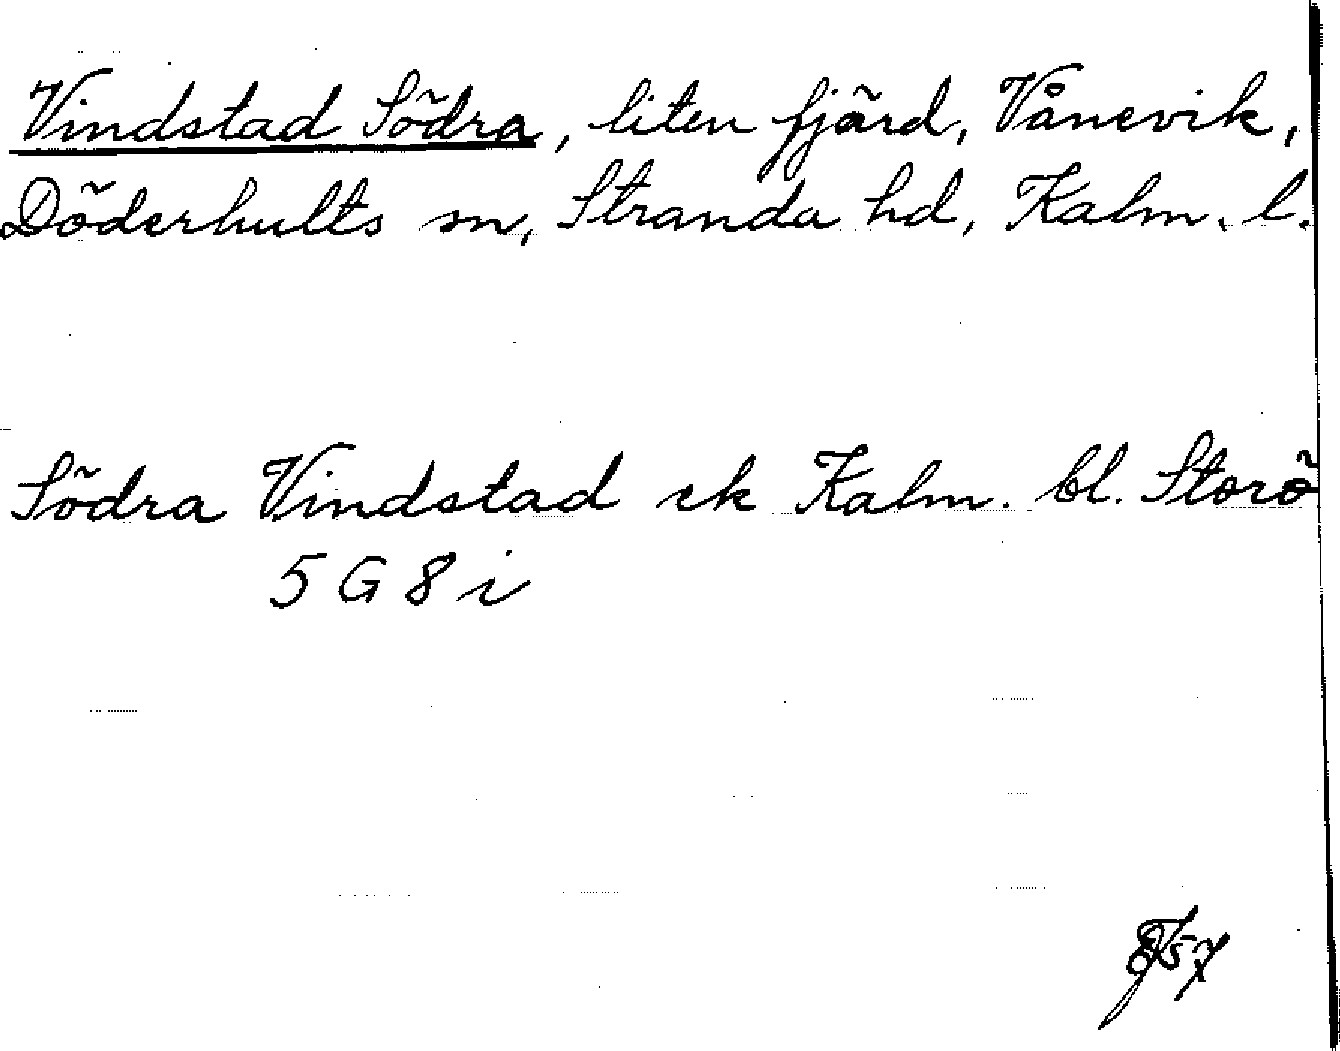 Vindstad Södra, liten fjärd, Vånevik,
Döderhults sn, Stranda hd, Kalm. l.
Södra Vindstad ek Kalm. bl. Storö
5 G 8 i